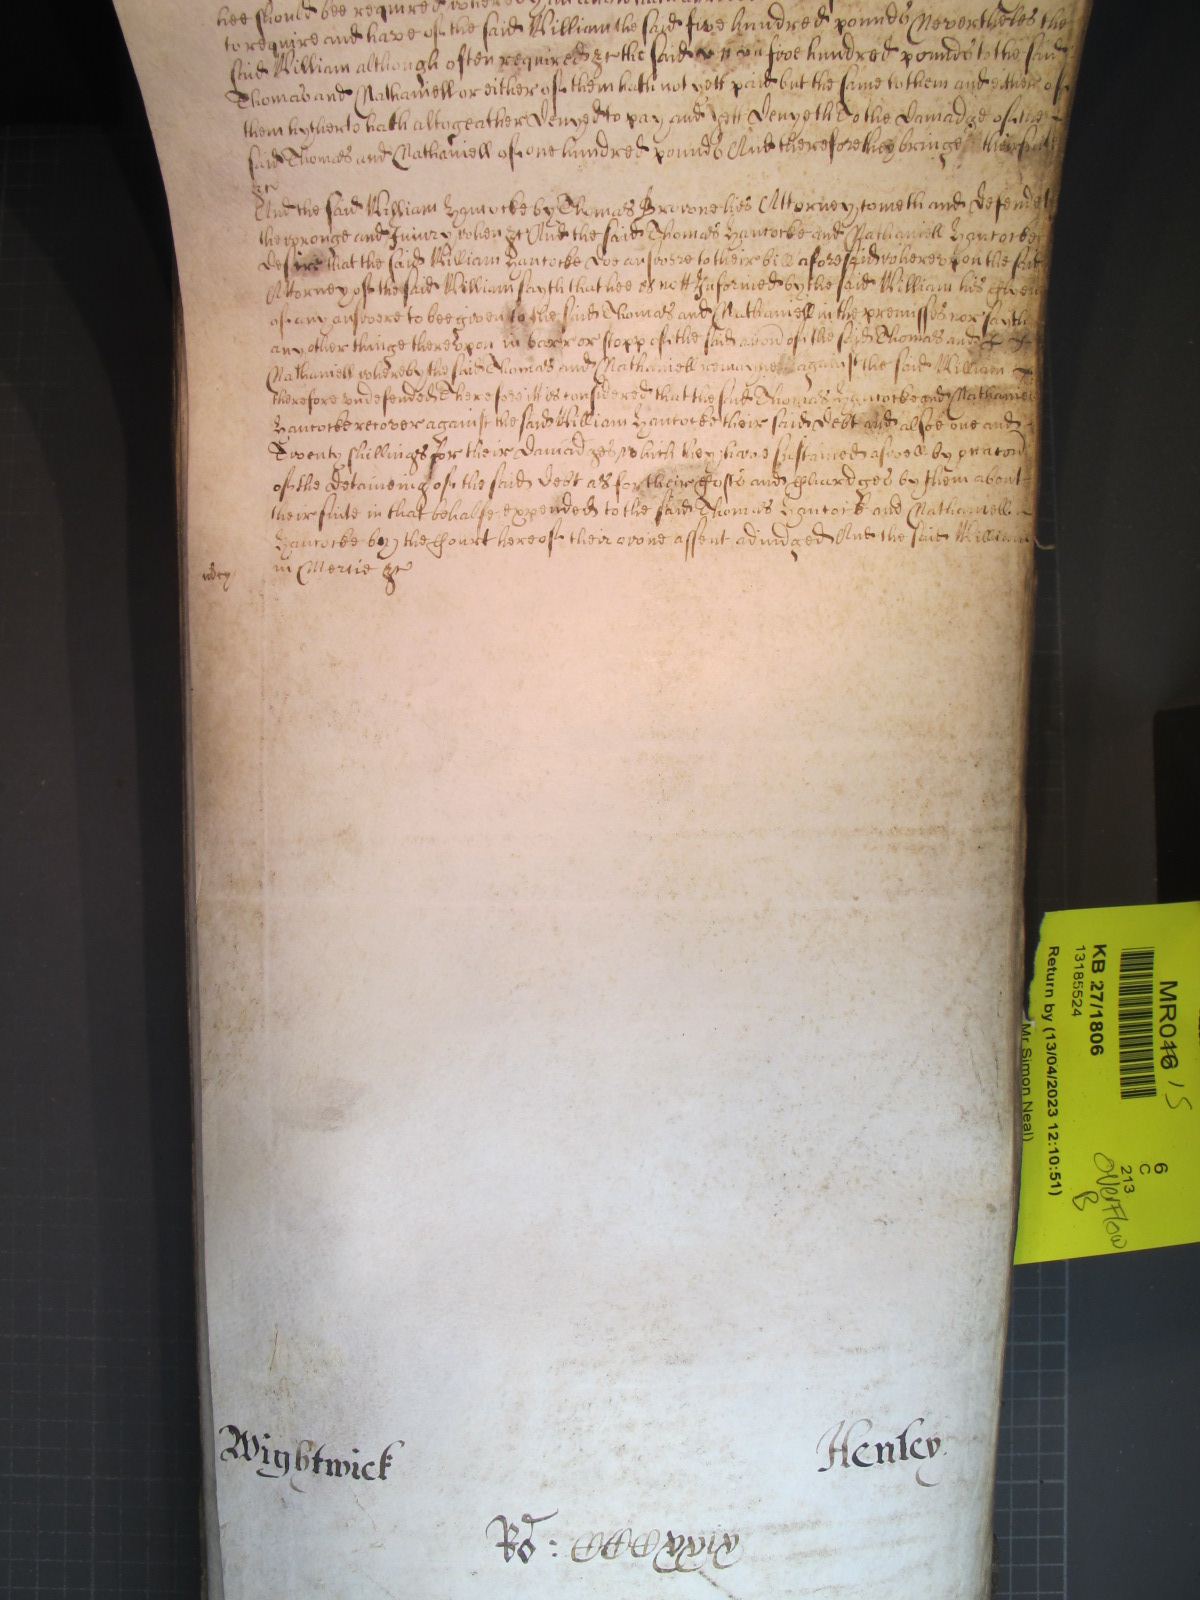 hee should bee required whereby
to require and have of the said William the said five hundred pounds Nevertheles the
said William although often required &c the said five hundred pounds to the said
Thomas and Nathaniell or either of them hath not yett paid but the same to them and either of
them hytherto hath altogeather denyed to pay and yett denyeth To the damadge of the
said Thomas and Nathaniell of one hundred pounds And therefore they bringe their suit
&c
And the said William Hancocke by Thomas Browne his Attorney cometh and defendeth
the wronge and Iniury when &c And the said Thomas Hancocke and Nathaniell Hancocke
desire that the said William Hancocke doe answere to their bill aforesaid whereupon the said
Attorney of the said William sayth that hee is nott Informed by the said William his
of any answere to bee given to the said Thomas and Nathaniell in the premisses nor sayth
any other thinge thereupon in barr or stopp of the said accon of the said Thomas and
Nathaniell whereby the said Thomas and Nathaniell remayne against the said William
therefore undefended Therefore itt is considered that the said Thomas Hancocke and Nathaniell
Hancocke recover against the said William Hancocke their said debt and alsoe one and
Twenty shillings for their damadges which they have sustained aswell by
of the detaineing of the said debt as for their Costs and Chardges by them about
their suite in that behalfe expended to the said Thomas Hancock and Nathaniell
Hancocke by the Court here of their owne assent adiudged And the said William
in Mercie &c
Wightwick
Henley
Ro: CCCCxxix
MR016 15
KB 27/1806
13185524
Return by (13/04/2023 12:10:51)
Mr Simon Neal)
6
C
213
Overflow
B